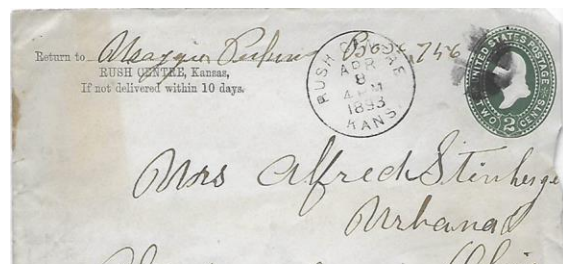 Return to Maggie Box 746
RUSH CENTRE, Kansas,
If not delivered within 10 days.
RUSH CENTRE
APR
8
4 PM
1893
KANS
UNITED STATES POSTAGE
TWO 2 CENTS
Mrs Alfred Stinberge
Urbana
Ohio